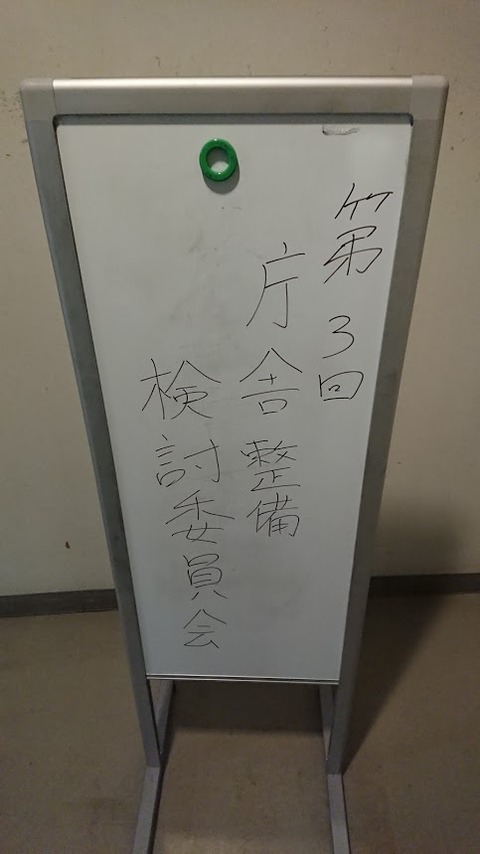 第3回
庁舎整備
検討委員会